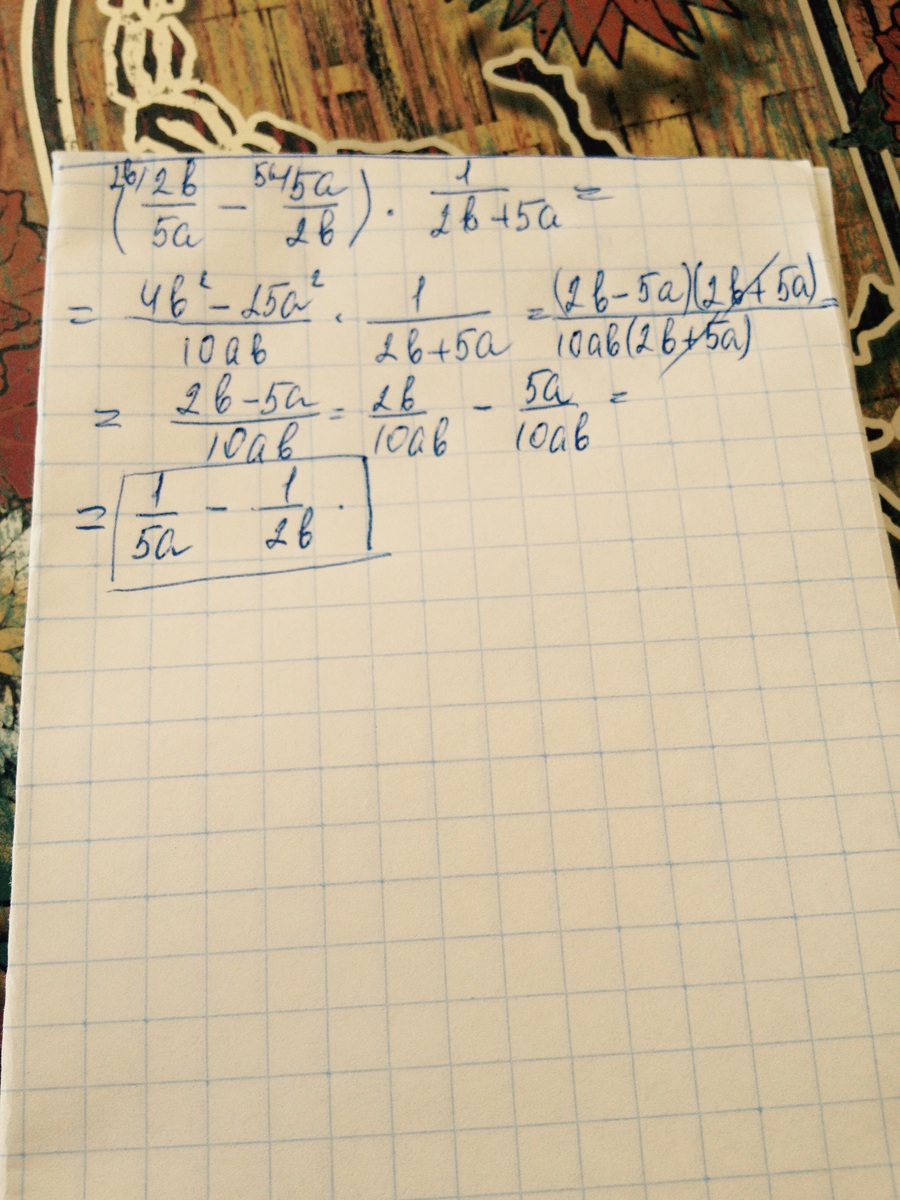 (^{2b/} \frac{2b}{5a} - ^{5a/} \frac{5a}{2b}) · \frac{1}{2b+5a} =
= \frac{4b^2 - 25a^2}{10ab} · \frac{1}{2b+5a} = \frac{(2b-5a)(2b+5a)}{10ab(2b+5a)} =
= \frac{2b-5a}{10ab} = \frac{2b}{10ab} - \frac{5a}{10ab} =
= \frac{1}{5a} - \frac{1}{2b} .